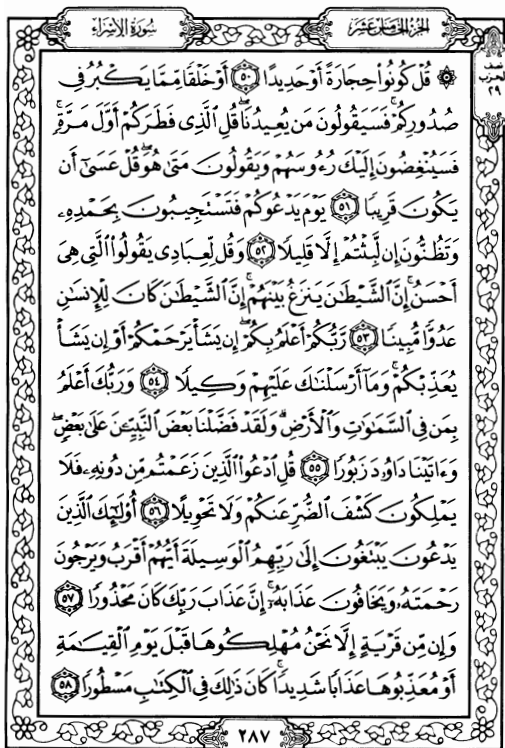 سُورَةُ الإِسْرَاءِ
الجُزْءُ الخَامِسَ عَشَرَ
نصف
الحزب
٢٩
۞ قُلْ كُونُوا۟ حِجَارَةً أَوْ حَدِيدًا ٥٠ أَوْ خَلْقًا مِّمَّا يَكْبُرُ فِى
صُدُورِكُمْ ۚ فَسَيَقُولُونَ مَن يُعِيدُنَا ۖ قُلِ ٱلَّذِى فَطَرَكُمْ أَوَّلَ مَرَّةٍ ۚ
فَسَيُنْغِضُونَ إِلَيْكَ رُءُوسَهُمْ وَيَقُولُونَ مَتَىٰ هُوَ ۖ قُلْ عَسَىٰٓ أَن
يَكُونَ قَرِيبًا ٥١ يَوْمَ يَدْعُوكُمْ فَتَسْتَجِيبُونَ بِحَمْدِهِۦ
وَتَظُنُّونَ إِن لَّبِثْتُمْ إِلَّا قَلِيلًا ٥٢ وَقُل لِّعِبَادِى يَقُولُوا۟ ٱلَّتِى هِىَ
أَحْسَنُ ۚ إِنَّ ٱلشَّيْطَٰنَ يَنزَغُ بَيْنَهُمْ ۚ إِنَّ ٱلشَّيْطَٰنَ كَانَ لِلْإِنسَٰنِ
عَدُوًّا مُّبِينًا ٥٣ رَّبُّكُمْ أَعْلَمُ بِكُمْ ۖ إِن يَشَأْ يَرْحَمْكُمْ أَوْ إِن يَشَأْ
يُعَذِّبْكُمْ ۚ وَمَآ أَرْسَلْنَٰكَ عَلَيْهِمْ وَكِيلًا ٥٤ وَرَبُّكَ أَعْلَمُ
بِمَن فِى ٱلسَّمَٰوَٰتِ وَٱلْأَرْضِ ۗ وَلَقَدْ فَضَّلْنَا بَعْضَ ٱلنَّبِيِّۦنَ عَلَىٰ بَعْضٍ ۖ
وَءَاتَيْنَا دَاوُۥدَ زَبُورًا ٥٥ قُلِ ٱدْعُوا۟ ٱلَّذِينَ زَعَمْتُم مِّن دُونِهِۦ فَلَا
يَمْلِكُونَ كَشْفَ ٱلضُّرِّ عَنكُمْ وَلَا تَحْوِيلًا ٥٦ أُو۟لَٰٓئِكَ ٱلَّذِينَ
يَدْعُونَ يَبْتَغُونَ إِلَىٰ رَبِّهِمُ ٱلْوَسِيلَةَ أَيُّهُمْ أَقْرَبُ وَيَرْجُونَ
رَحْمَتَهُۥ وَيَخَافُونَ عَذَابَهُۥٓ ۚ إِنَّ عَذَابَ رَبِّكَ كَانَ مَحْذُورًا ٥٧
وَإِن مِّن قَرْيَةٍ إِلَّا نَحْنُ مُهْلِكُوهَا قَبْلَ يَوْمِ ٱلْقِيَٰمَةِ
أَوْ مُعَذِّبُوهَا عَذَابًا شَدِيدًا ۚ كَانَ ذَٰلِكَ فِى ٱلْكِتَٰبِ مَسْطُورًا ٥٨
٢٨٧